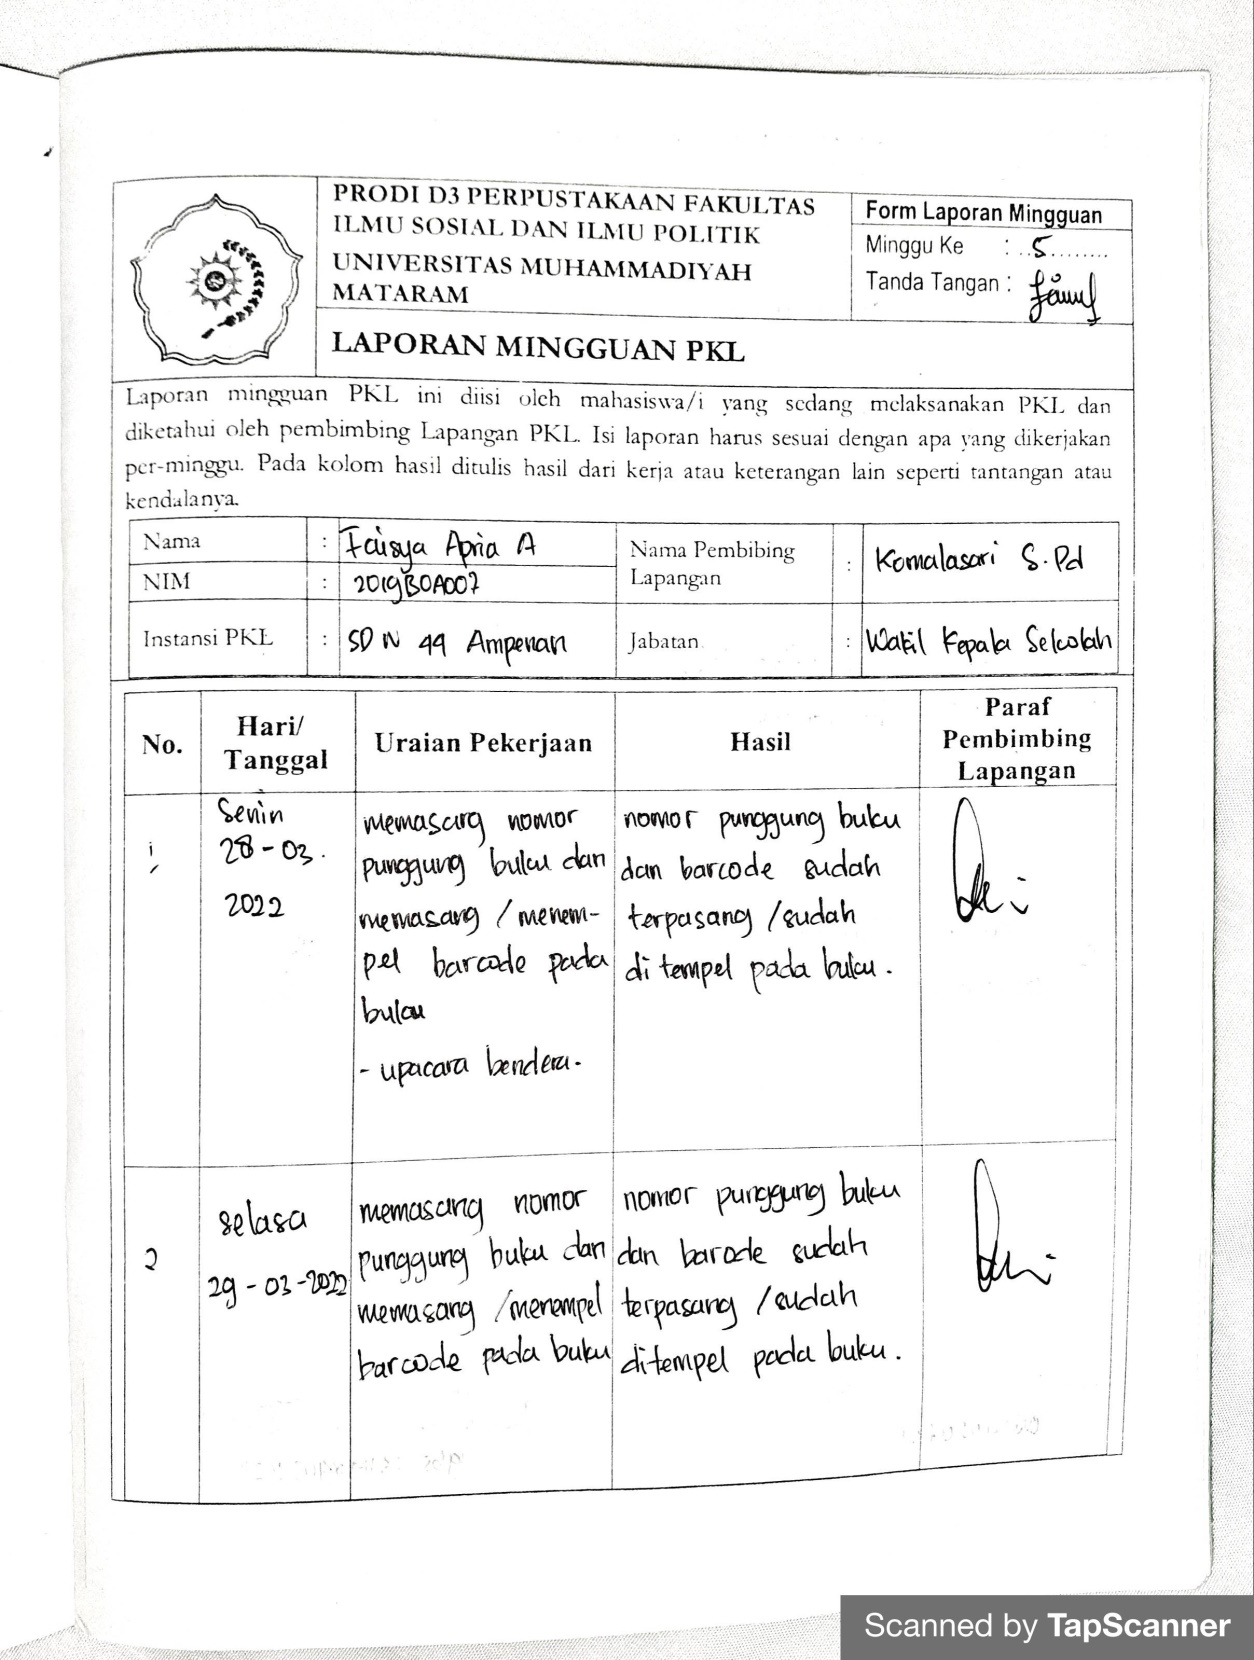 PRODI D3 PERPUSTAKAAN FAKULTAS
ILMU SOSIAL DAN ILMU POLITIK
UNIVERSITAS MUHAMMADIYAH
MATARAM
Form Laporan Mingguan
Minggu Ke : ..5.........
Tanda Tangan :
LAPORAN MINGGUAN PKL
Laporan mingguan PKL ini diisi oleh mahasiswa/i yang sedang melaksanakan PKL dan
diketahui oleh pembimbing Lapangan PKL. Isi laporan harus sesuai dengan apa yang dikerjakan
per-minggu. Pada kolom hasil ditulis hasil dari kerja atau keterangan lain seperti tantangan atau
kendalanya.
Nama : Faisya Apria A
NIM : 2019B0A007
Nama Pembibing
Lapangan : Komalasari S.Pd
Instansi PKL : SDN 44 Ampenan
Jabatan : Wakil Kepala Sekolah
No.
Hari/
Tanggal
Uraian Pekerjaan
Hasil
Paraf
Pembimbing
Lapangan
1
Senin
28-03.
2022
memasang nomor
punggung buku dan
memasang / menem-
pel barcode pada
buku
- upacara bendera.
nomor punggung buku
dan barcode sudah
terpasang /sudah
di tempel pada buku.
2
selasa
29-03-2022
memasang nomor
punggung buku dan
memasang /menempel
barcode pada buku
nomor punggung buku
dan barcode sudah
terpasang /sudah
ditempel pada buku.
Scanned by TapScanner